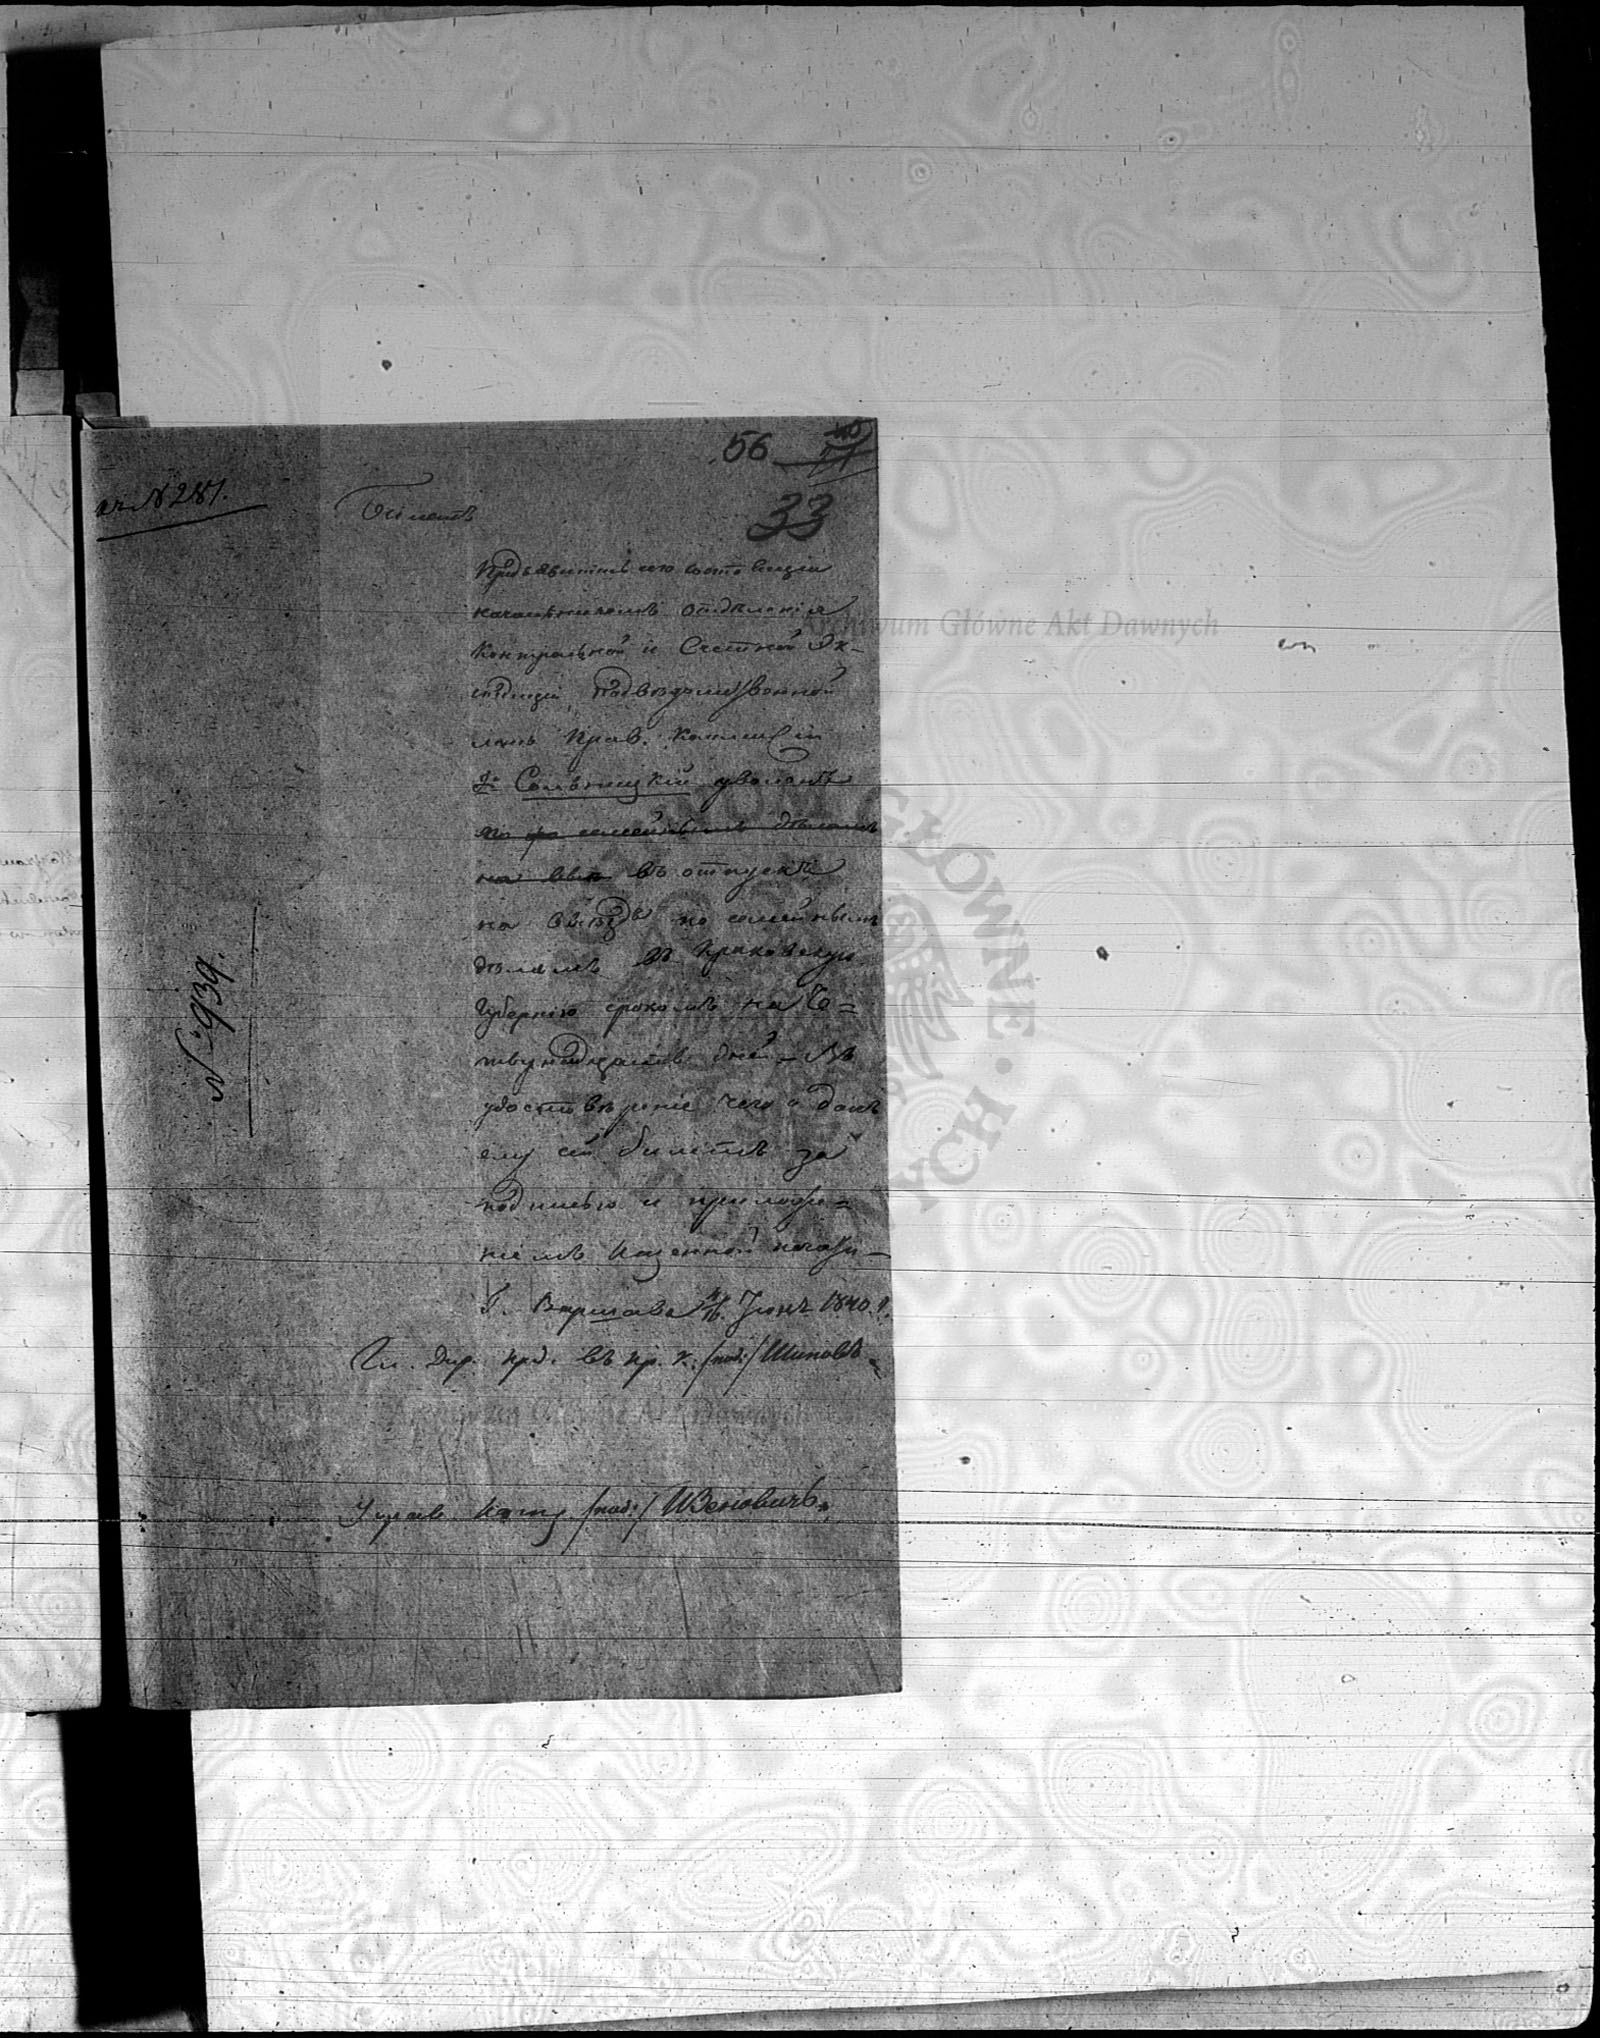 56
33
къ № 281.
Билетъ
Предъявитель сего состоящiй
начальникомъ отдѣленiя
Контрольной и Счетной Эк-
спедицiи, подвѣдомственной
Прав. Коммисiи
Гъ Сольницкiй уволенъ
по семейнымъ дѣламъ
на въ отпускъ
на выѣздъ по семейнымъ
дѣламъ въ Краковскую
Губернiю срокомъ на Че=
тырнадцать дней. Въ
удостовѣренiе чего и данъ
ему сей билетъ за
подписью и приложе=
нiемъ Казенной печати
Г. Варшава 4/16 Iюня 1840 г.
Гл. Дир. Прд. въ Пр. К. /под:/ Шиповъ
Управ. Канц. /под:/
№ 939.
Archiwum Główne Akt Dawnych
Archiwum Główne Akt Dawnych